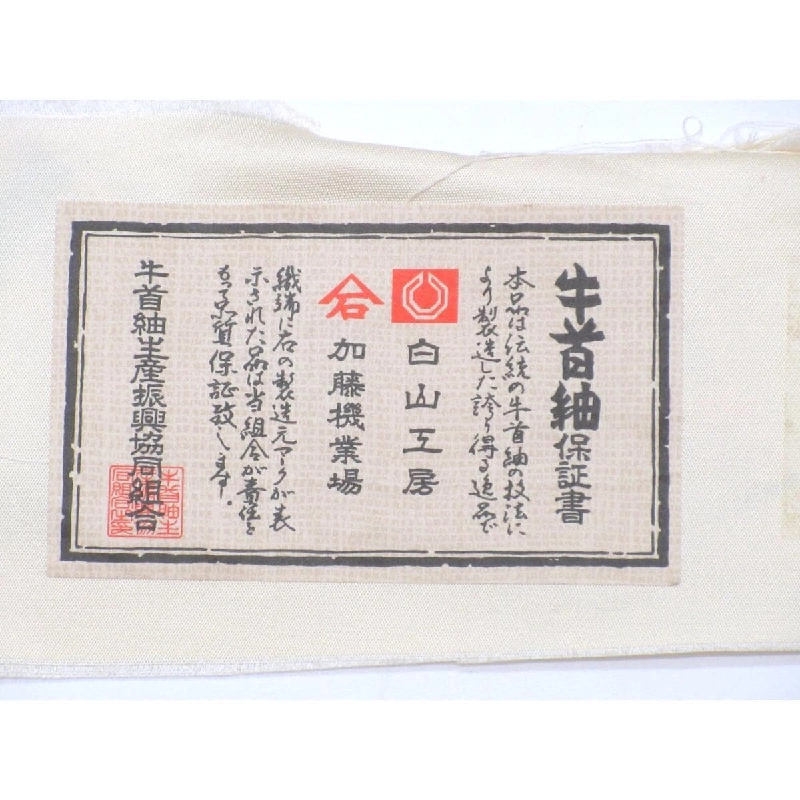 牛首紬保証書
本品は伝統の牛首紬の技法に
より製造した誇り得る逸品で
白山工房
加藤機業場
織端に右の製造元マークが表
示された品は当組合が責任を
もって品質保証致します。
牛首紬生産振興協同組合